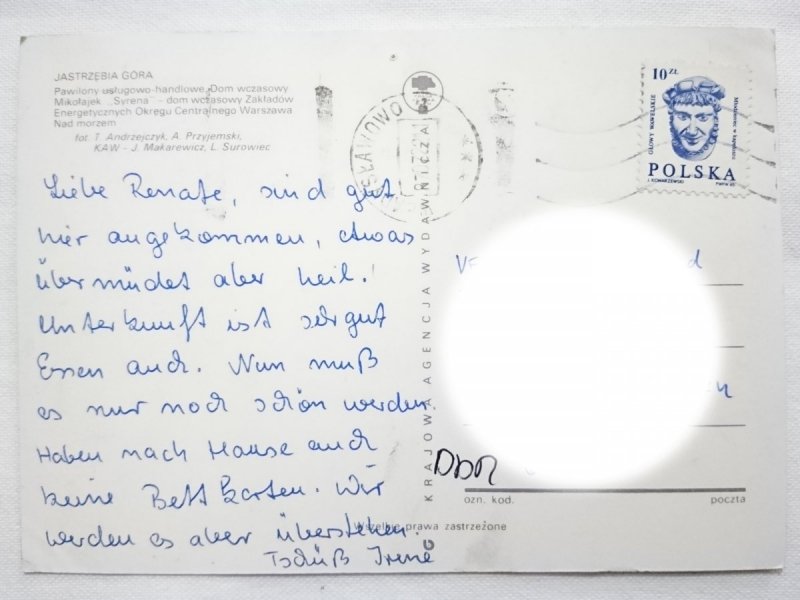 JASTRZĘBIA GÓRA
Pawilony usługowo-handlowe, Dom wczasowy
Mikołajek „Syrena” - dom wczasowy Zakładów
Energetycznych Okręgu Centralnego Warszawa
Nad morzem
fot. T. Andrzejczyk, A. Przyjemski,
KAW - J. Makarewicz, L. Surowiec
Liebe Renate, sind gut
hier angekommen, etwas
übermüdet aber heil.
Unterkunft ist sehr gut
Essen auch. Nun muß
es nur noch schön werden.
Haben nach Hause auch
keine Bettkarten. Wir
werden es aber überstehen.
Tschüß Irene
KRAJOWA AGENCJA WYDAWNICZA
10 ZŁ
GŁOWY WAWELSKIE
POLSKA
DDR
ozn. kod.
poczta
Wszelkie prawa zastrzeżone